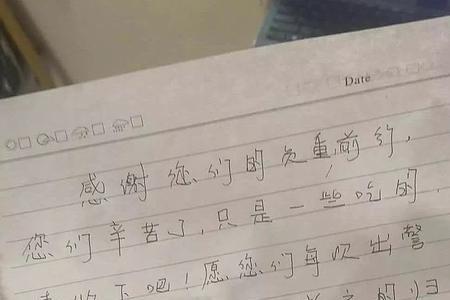 Date
感谢您们的负重前约,
您们辛苦了,只是一些吃的,
收下吧!愿您们每次出警
的归